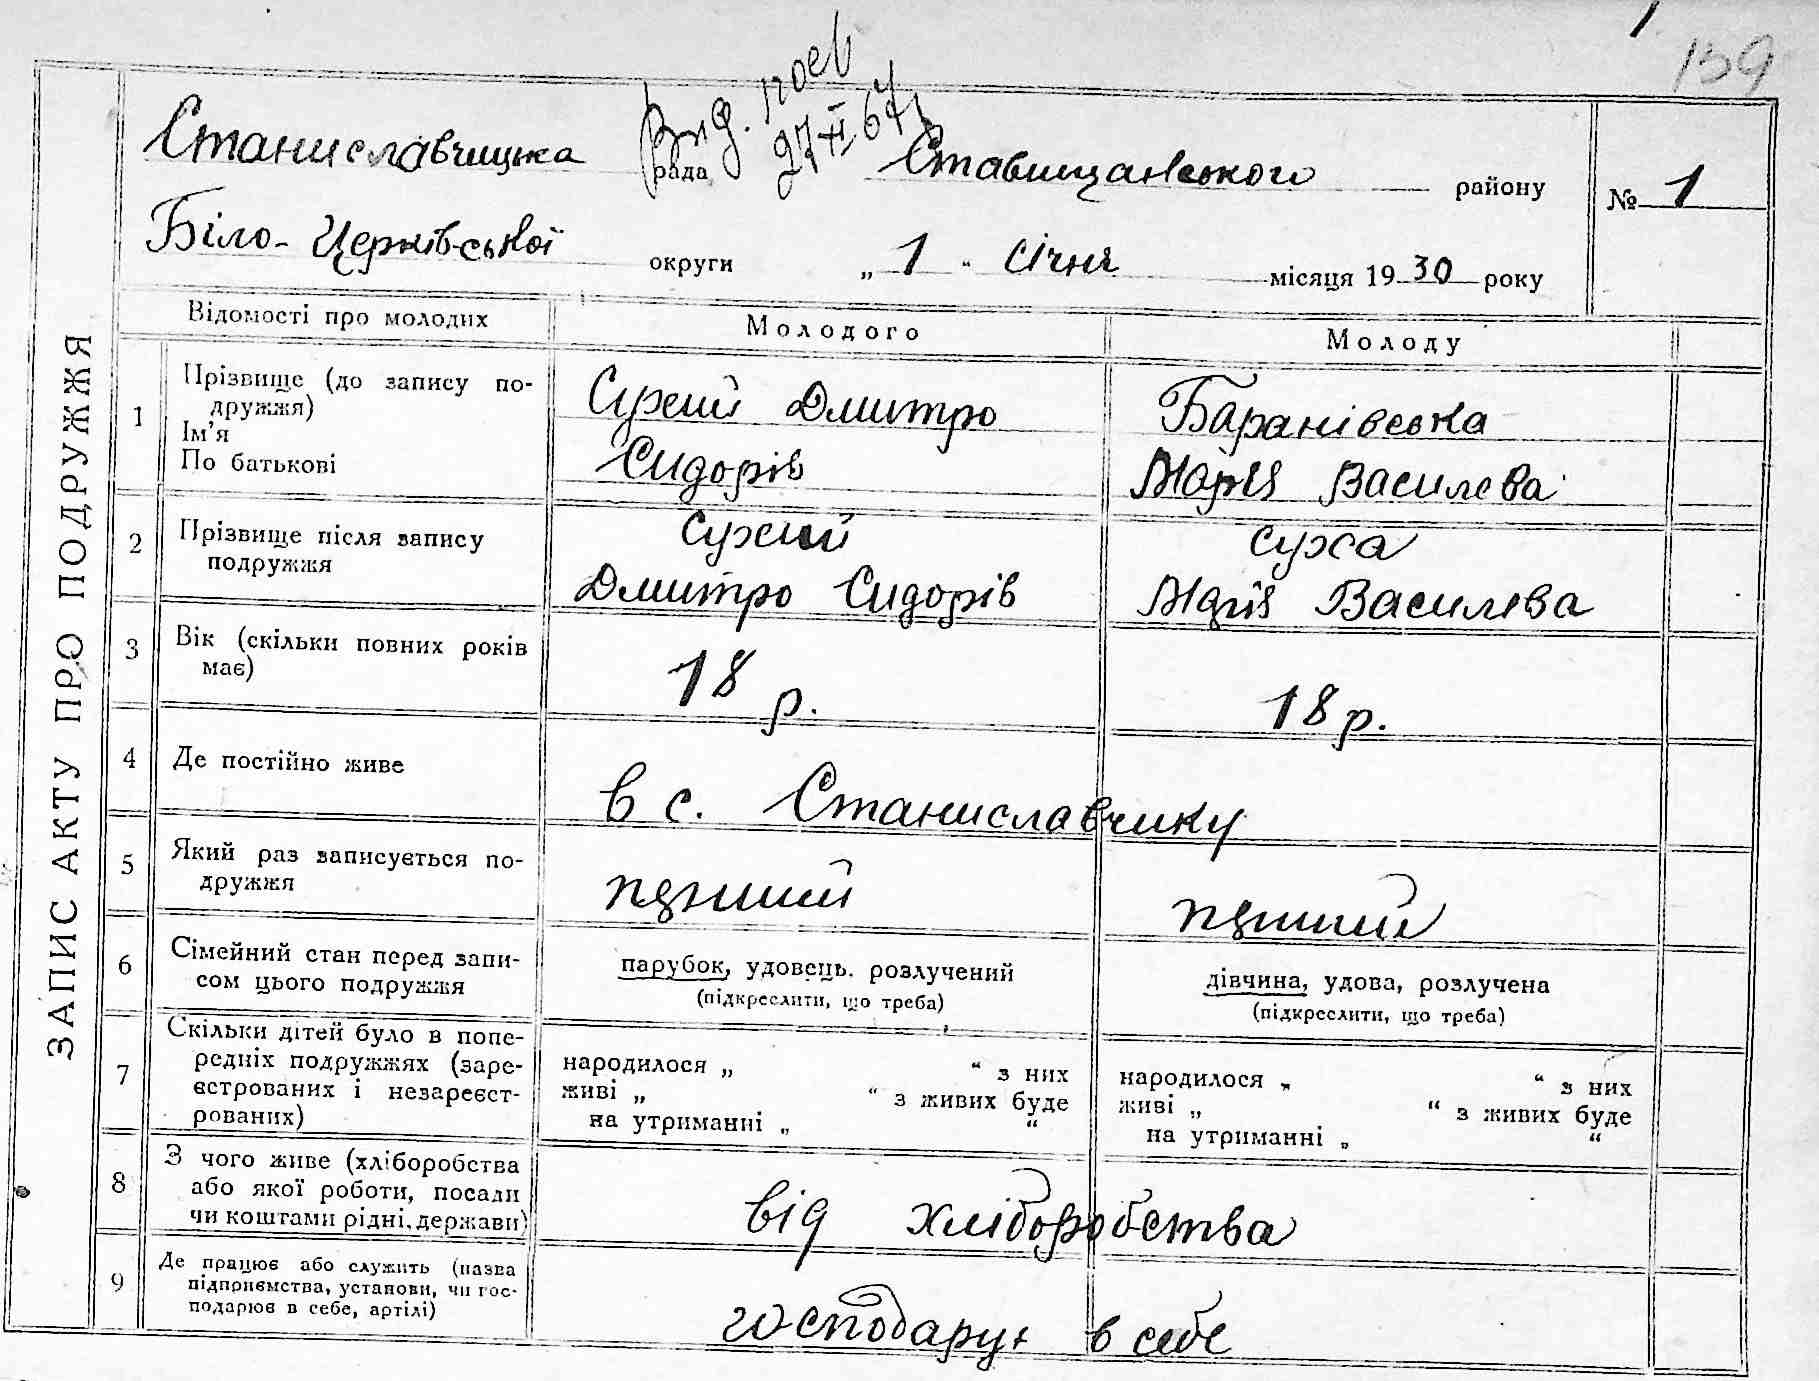 1
159
Вид. 
27 XI 67
Станиславчицька рада Ставищанського району № 1
Біло-Церківської округи „1“ січня місяця 1930 року
ЗАПИС АКТУ ПРО ПОДРУЖЖЯ
Відомості про молодих Молодого Молоду
1 Прізвище (до запису по-
дружжя)
Ім'я
По батькові
Сухий Дмитро
Сидорів
Баранівська
Марія Василєва
2 Прізвище після запису
подружжя
Сухий
Дмитро Сидорів
Суха
Марія Василєва
3 Вік (скільки повних років
має)
18 р.
18 р.
4 Де постійно живе
в с. Станиславчику
5 Який раз записується по-
дружжя
перший
перший
6 Сімейний стан перед запи-
сом цього подружжя
парубок, удовець. розлучений
(підкреслити, що треба)
дівчина, удова, розлучена
(підкреслити, що треба)
7 Скільки дітей було в попе-
редніх подружжях (заре-
єстрованих і незареєст-
рованих)
народилося „ “ з них
живі „ “ з живих буде
на утриманні „ “
народилося „ “ з них
живі „ “ з живих буде
на утриманні „ “
8 З чого живе (хліборобства
або якої роботи, посади
чи коштами рідні, держави)
від хліборобства
9 Де працює або служить (назва
підприємства, установи, чи гос-
подарює в себе, артілі)
господарує в себе